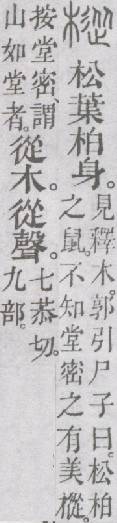 樅
松葉柏身。
見釋木。郭引尸子曰。松柏
之鼠。不知堂密之有美樅。
按堂密、謂
山如堂者。
從木。從聲。
七恭切。
九部。